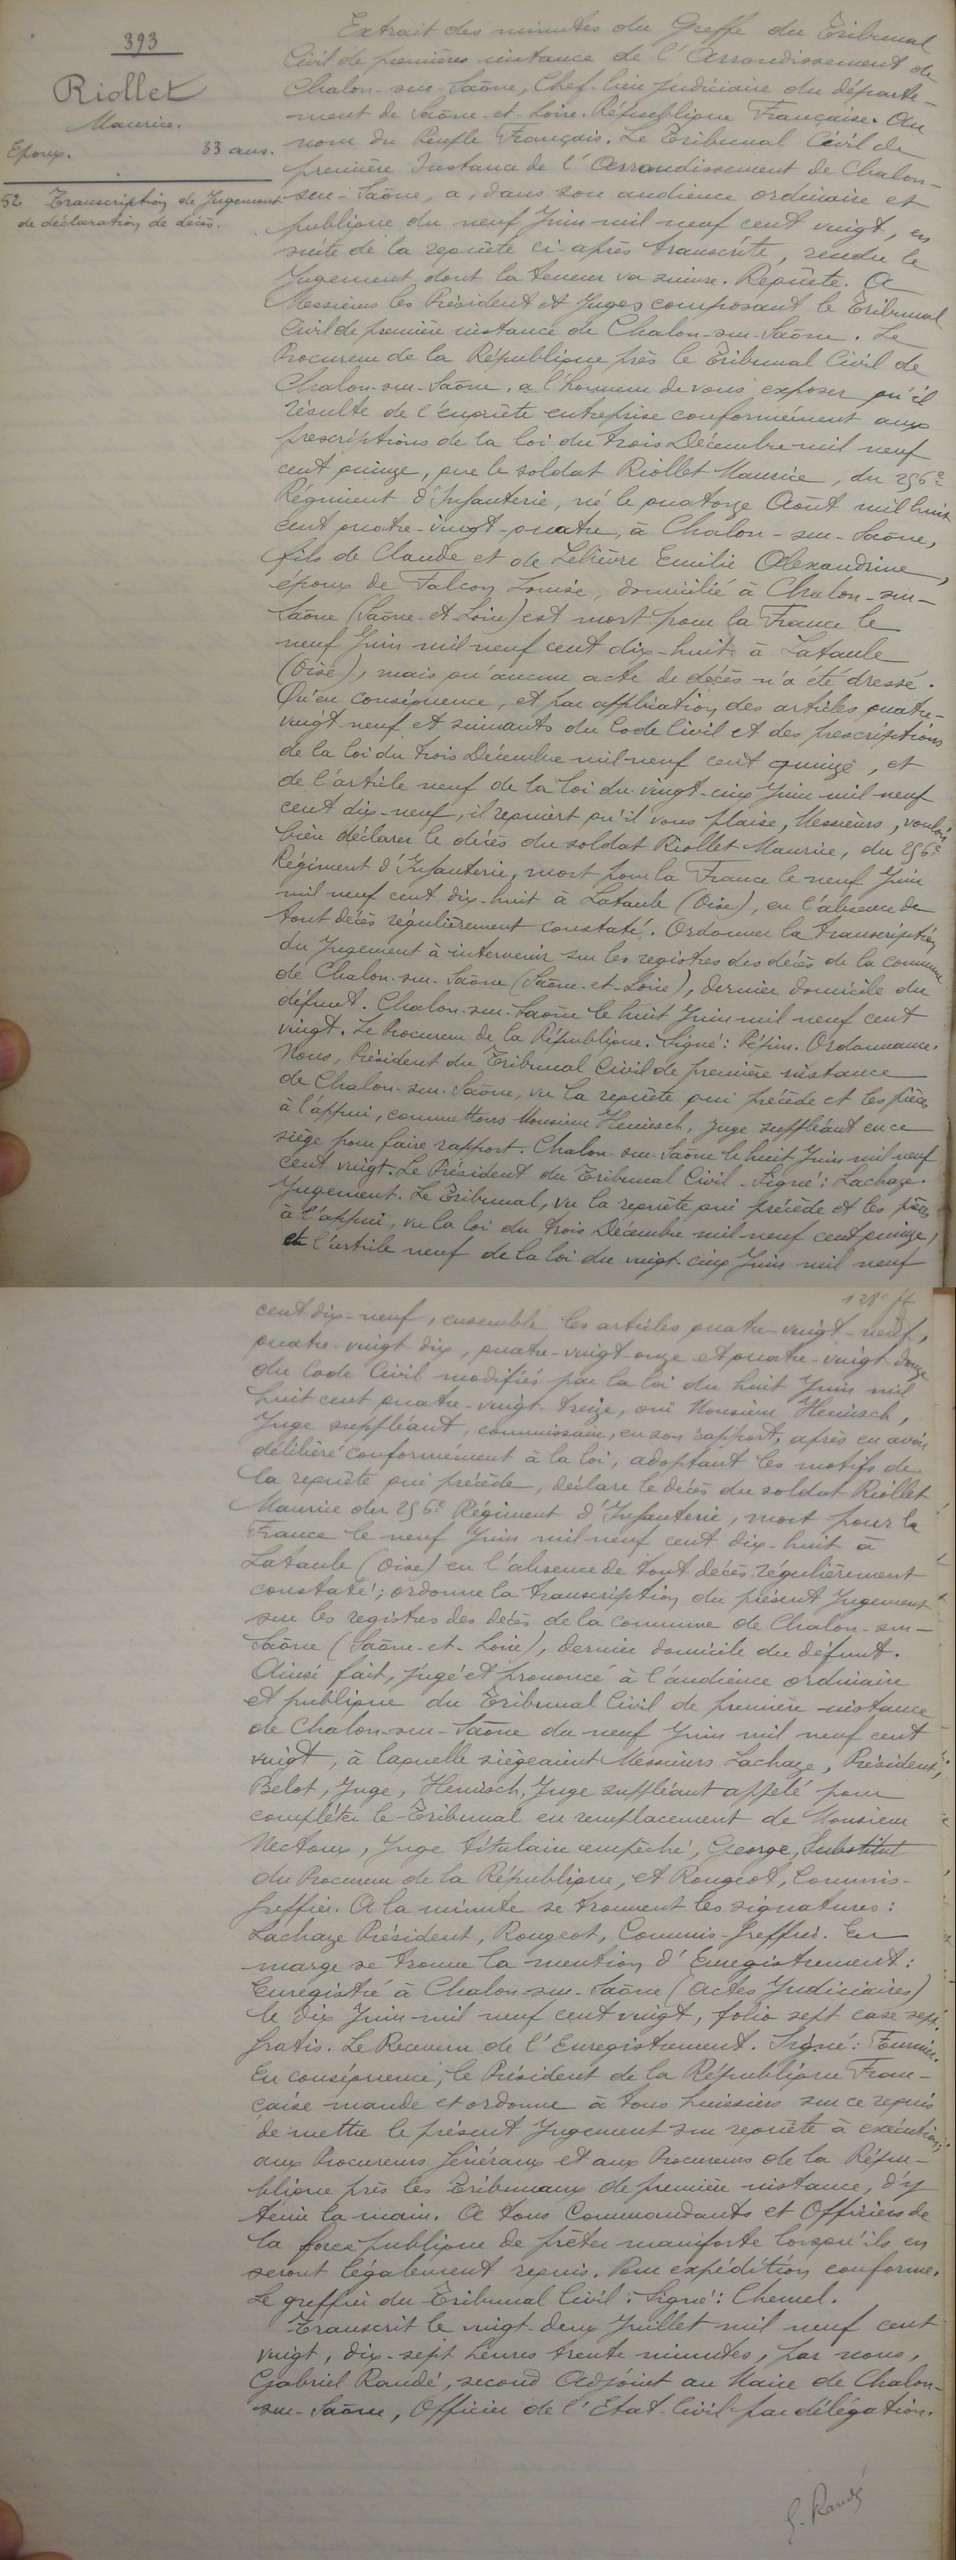 393
Riollet
Maurice.
Epoux. 33 ans.
52 Transcription de Jugement
de déclaration de décès.
Extrait des minutes du Greffe du Tribunal
Civil de première instance de l'Arrondissement de
Chalon-sur-Saône, Chef-lieu judiciaire du départe-
ment de Saône-et-Loire. République Française. Au
nom du Peuple Français. Le Tribunal Civil de
première Instance de l'Arrondissement de Chalon-
sur-Saône, a, dans son audience ordinaire et
publique du neuf Juin mil neuf cent vingt, en
suite de la requête ci-après transcrite, rendu le
Jugement dont la teneur va suivre. Requête. A
Messieurs les Président et Juges composant le Tribunal
Civil de première instance de Chalon-sur-Saône. Le
Procureur de la République près le Tribunal Civil de
Chalon-sur-Saône, a l'honneur de vous exposer qu'il
résulte de l'enquête entreprise conformément aux
prescriptions de la loi du trois Décembre mil neuf
cent quinze, que le soldat Riollet Maurice, du 296e
Régiment d'Infanterie, né le quatorze Août mil huit
cent quatre-vingt-quatre, à Chalon-sur-Saône,
fils de Claude et de Lelièvre Emilie Alexandrine,
époux de Falcoy Louise, domicilié à Chalon-sur-
Saône (Saône-et-Loire) est mort pour la France le
neuf Juin mil neuf cent dix-huit à Lataule
(Oise), mais qu'aucun acte de décès n'a été dressé.
Qu'en conséquence, et par application des articles quatre-
vingt-neuf et suivants du Code Civil et des prescriptions
de la loi du trois Décembre mil neuf cent quinze, et
de l'article neuf de la loi du vingt-cinq Juin mil neuf
cent dix-neuf, il requiert qu'il vous plaise, Messieurs, vouloir
bien déclarer le décès du soldat Riollet Maurice, du 296e
Régiment d'Infanterie, mort pour la France le neuf Juin
mil neuf cent dix-huit à Lataule (Oise), en l'absence de
tout décès régulièrement constaté. Ordonner la transcription
du Jugement à intervenir sur les registres des décès de la commune
de Chalon-sur-Saône (Saône-et-Loire), dernier domicile du
défunt. Chalon-sur-Saône le huit Juin mil neuf cent
vingt. Le Procureur de la République. Signé: Pépin. Ordonnance.
Nous, Président du Tribunal Civil de première instance
de Chalon-sur-Saône, vu la requête qui précède et les pièces
à l'appui, commettons Monsieur Heinisch, juge suppléant en ce
siège pour faire rapport. Chalon-sur-Saône le huit Juin mil neuf
cent vingt. Le Président du Tribunal Civil - Signé: Lachaze.
Jugement. Le Tribunal, vu la requête qui précède et les pièces
à l'appui, vu la loi du trois Décembre mil neuf cent quinze,
et l'article neuf de la loi du vingt-cinq Juin mil neuf
128e ft
cent dix-neuf, ensemble les articles quatre-vingt-neuf,
quatre-vingt-dix, quatre-vingt-onze et quatre-vingt-douze
du Code Civil modifiés par la loi du huit Juin mil
huit cent quatre-vingt-treize, ouï Monsieur Heinisch,
Juge suppléant, commissaire, en son rapport, après en avoir
délibéré conformément à la loi, adoptant les motifs de
la requête qui précède, déclare le décès du soldat Riollet
Maurice du 296e Régiment d'Infanterie, mort pour la
France le neuf Juin mil neuf cent dix-huit à
Lataule (Oise) en l'absence de tout décès régulièrement
constaté; ordonne la transcription du présent Jugement
sur les registres des décès de la commune de Chalon-sur-
Saône (Saône-et-Loire), dernier domicile du défunt.
Ainsi fait, jugé et prononcé à l'audience ordinaire
et publique du Tribunal Civil de première instance
de Chalon-sur-Saône du neuf Juin mil neuf cent
vingt, à laquelle siégeaient Messieurs Lachaze, Président,
Belot, Juge, Heinisch, Juge suppléant appelé pour
compléter le Tribunal en remplacement de Monsieur
Nectoux, Juge titulaire empêché, George, Substitut
du Procureur de la République, et Rougeot, Commis-
greffier. A la minute se trouvent les signatures:
Lachaze Président, Rougeot, Commis-greffier. En
marge se trouve la mention d'Enregistrement:
Enregistré à Chalon-sur-Saône (Actes Judiciaires)
le dix Juin mil neuf cent vingt, folio sept case sept.
Gratis. Le Receveur de l'Enregistrement. Signé: Fournier.
En conséquence, le Président de la République Fran-
çaise mande et ordonne à tous huissiers sur ce requis
de mettre le présent Jugement sur requête à exécution;
aux Procureurs Généraux et aux Procureurs de la Répu-
blique près les Tribunaux de première instance, d'y
tenir la main. A tous Commandants et Officiers de
la force publique de prêter mainforte lorsqu'ils en
seront légalement requis. Pour expédition conforme.
Le greffier du Tribunal Civil: Signé: Chemel.
Transcrit le vingt-deux Juillet mil neuf cent
vingt, dix-sept heures trente minutes, par nous,
Gabriel Randé, second Adjoint au Maire de Chalon-
sur-Saône, Officier de l'Etat-Civil par délégation.
G. Randé